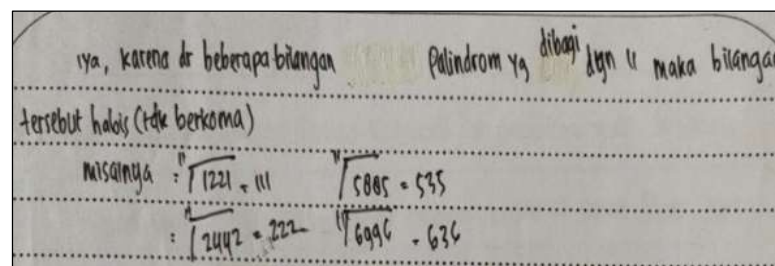 iya, karena dr beberapa bilangan Palindrom yg dibagi dgn 11 maka bilangan
tersebut habis (tdk berkoma)
misalnya : 11√1221 = 111 11√5885 = 535
: 11√2442 = 222 11√6996 = 636